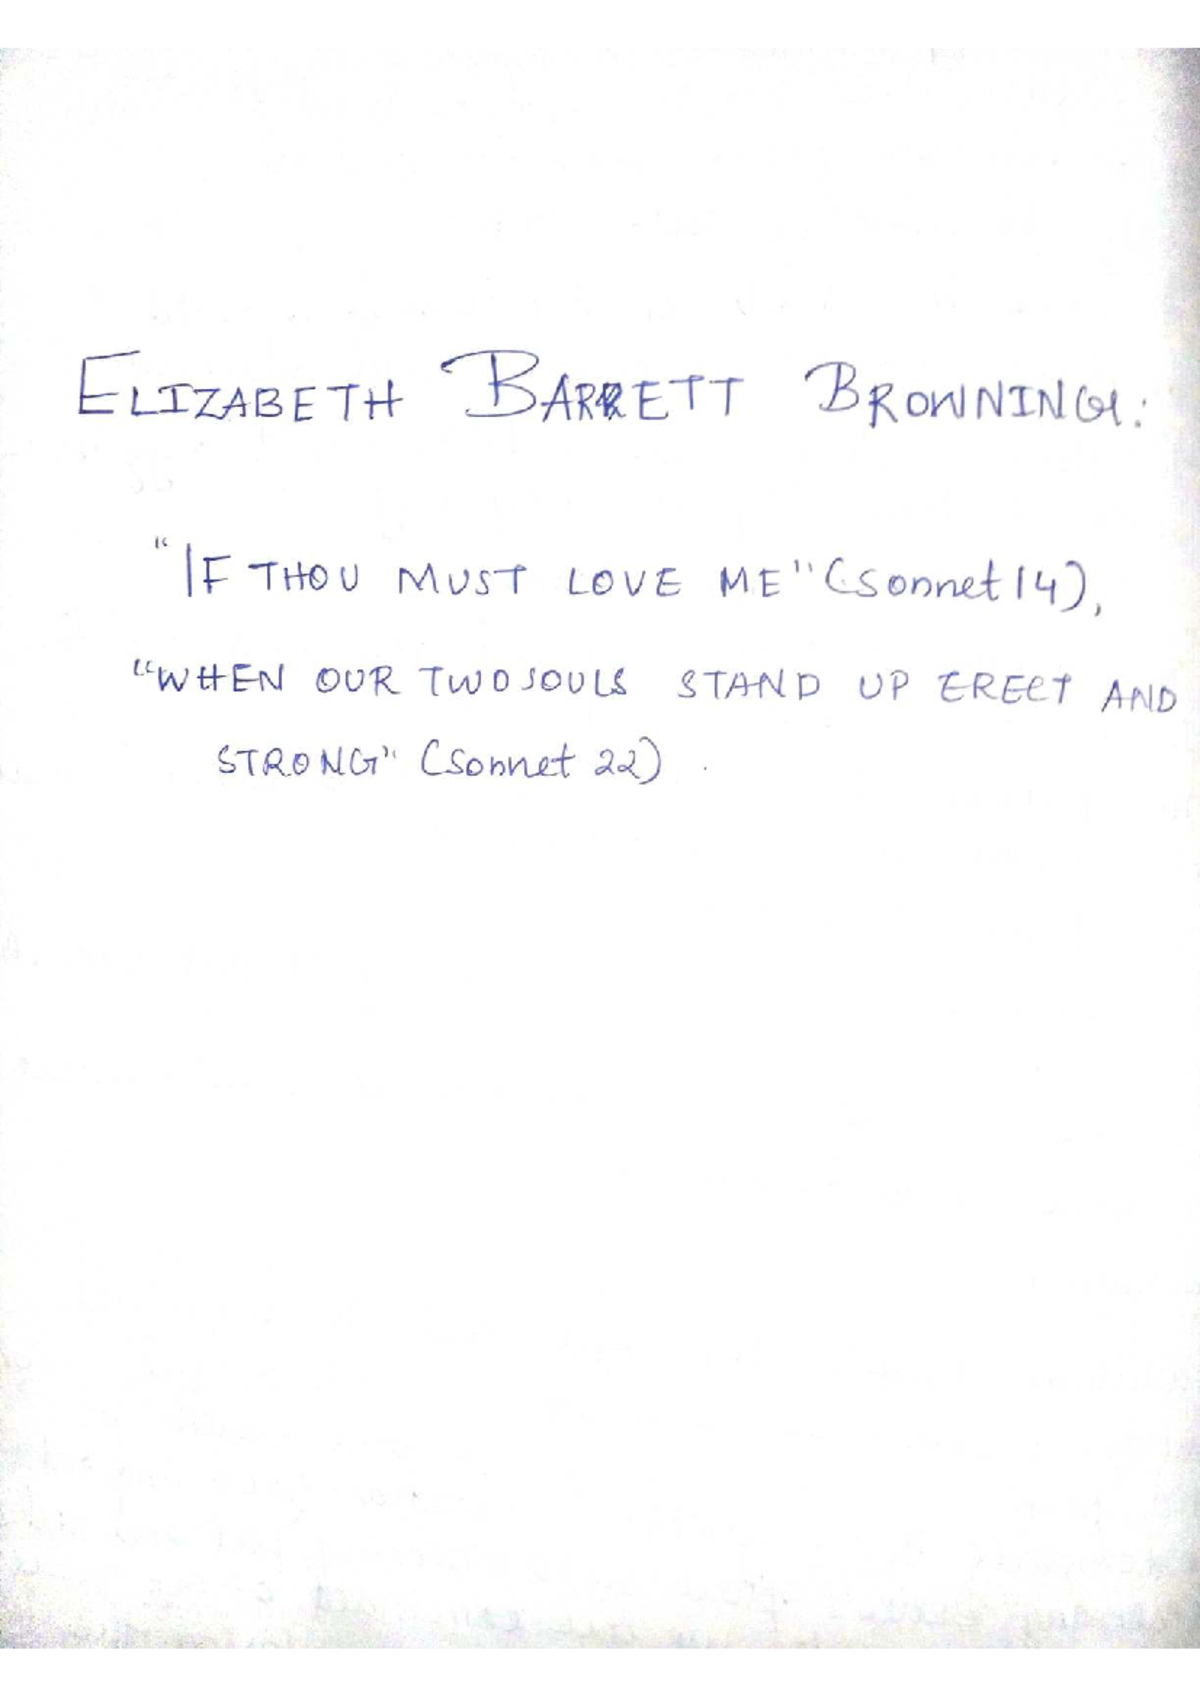 ELIZABETH BARRETT BROWNING:
"IF THOU MUST LOVE ME" (Sonnet 14),
"WHEN OUR TWO SOULS STAND UP ERECT AND
STRONG" (Sonnet 22).